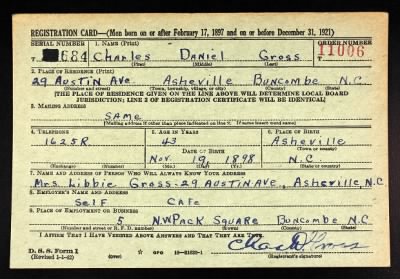 REGISTRATION CARD—(Men born on or after February 17, 1897 and on or before December 31, 1921)
SERIAL NUMBER 1. NAME (Print) ORDER NUMBER
T 684 Charles Daniel Gross 11006
(First) (Middle) (Last)
2. PLACE OF RESIDENCE (Print)
29 Austin Ave. Asheville Buncombe N.C.
(Number and street) (Town, township, village, or city) (County) (State)
[THE PLACE OF RESIDENCE GIVEN ON THE LINE ABOVE WILL DETERMINE LOCAL BOARD
JURISDICTION; LINE 2 OF REGISTRATION CERTIFICATE WILL BE IDENTICAL]
3. MAILING ADDRESS
SAME
[Mailing address if other than place indicated on line 2. If same insert word same]
4. TELEPHONE 5. AGE IN YEARS 6. PLACE OF BIRTH
1625R 43 Asheville
DATE OF BIRTH (Town or county)
Nov. 19 1898 N.C.
(Exchange) (Number) (Mo.) (Day) (Yr.) (State or country)
7. NAME AND ADDRESS OF PERSON WHO WILL ALWAYS KNOW YOUR ADDRESS
Mrs. Libbie Gross-29 AUSTIN AVE., Asheville, N.C.
8. EMPLOYER'S NAME AND ADDRESS
Self Cafe
9. PLACE OF EMPLOYMENT OR BUSINESS
5 N.W PACK Square Buncombe N.C
(Number and street or R. F. D. number) (Town) (County) (State)
I AFFIRM THAT I HAVE VERIFIED ABOVE ANSWERS AND THAT THEY ARE TRUE.
Chas D Gross
D. S. S. Form 1
(Revised 1-1-42) (over) GPO 16—21630-1 (Registrant's signature)